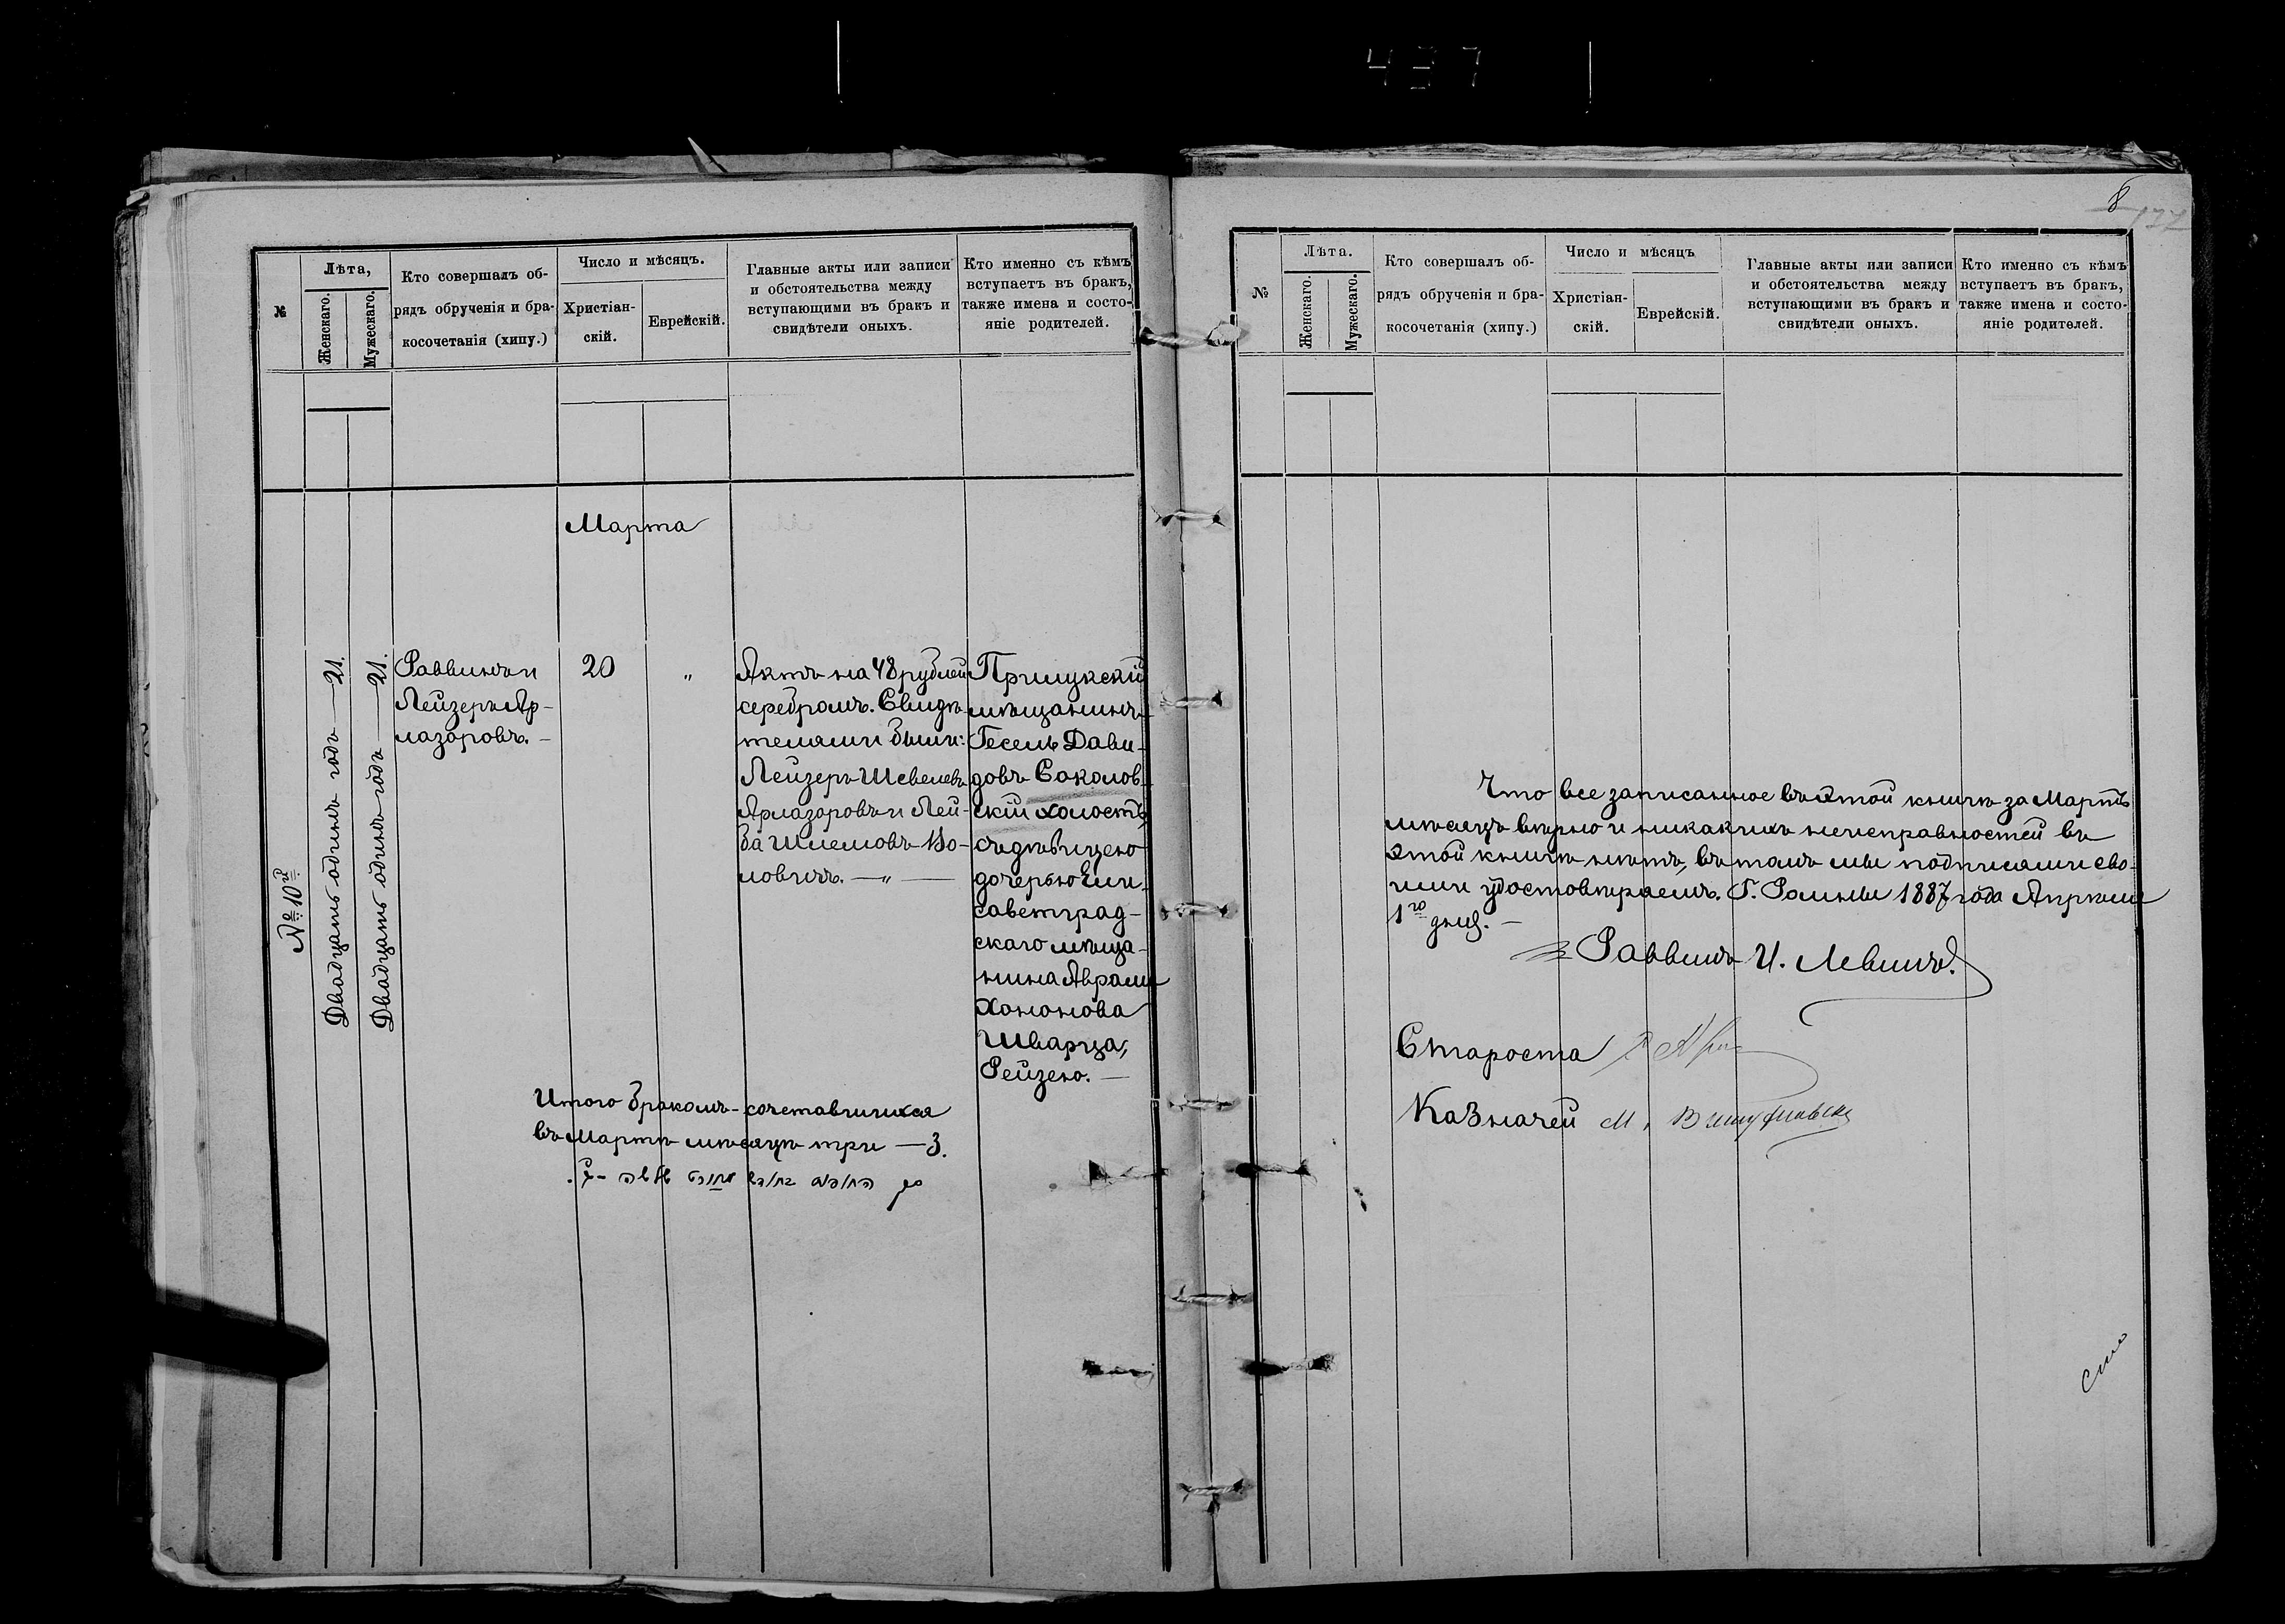 437
№
Лѣта,
Женскаго.
Мужескаго.
Кто совершалъ об-
рядъ обрученія и бра-
косочетанія (хипу.)
Число и мѣсяцъ.
Христіан-
скій.
Еврейскій.
Главные акты или записи
и обстоятельства между
вступающими въ бракъ и
свидѣтели оныхъ.
Кто именно съ кѣмъ
вступаетъ въ бракъ,
также имена и состо-
яніе родителей.
Марта
№ 10й
Двадцать одинъ годъ — 21.
Двадцать одинъ годъ — 21.
Раввинъ и
Лейзеръ Ар-
лазоровъ. —
20
"
Актъ на 48 рублей
серебромъ. Свидѣ-
телями были:
Лейзеръ Шевелевъ
Арлазоровъ и Лей-
ба Шлемовъ
ловичъ. — " —
Прилукскій
мѣщанинъ
Гесель Дави-
довъ Соколов-
скій холостъ,
съ дѣвицею
дочерью Ели-
саветград-
скаго мѣща-
нина Аврама
Хононова
Шварца,
Рейзею. —
Итого бракомъ-сочетавшихся
въ Мартѣ мѣсяцѣ три — 3.
8
№
Лѣта.
Женскаго.
Мужескаго.
Кто совершалъ об-
рядъ обрученія и бра-
косочетанія (хипу.)
Число и мѣсяцъ
Христіан-
скій.
Еврейскій.
Главные акты или записи
и обстоятельства между
вступающими въ бракъ и
свидѣтели оныхъ.
Кто именно съ кѣмъ
вступаетъ въ бракъ,
также имена и состо-
яніе родителей.
Что все записанное въ этой книгѣ за Мартъ
мѣсяцъ вѣрно и никакихъ неисправностей въ
этой книгѣ нѣтъ, въ томъ мы подписями сво-
ими удостовѣряемъ. Г. Ромны 1887 года Апрѣля
1го дня. —
Раввинъ И. Левинъ.
Староста
Казначей М.